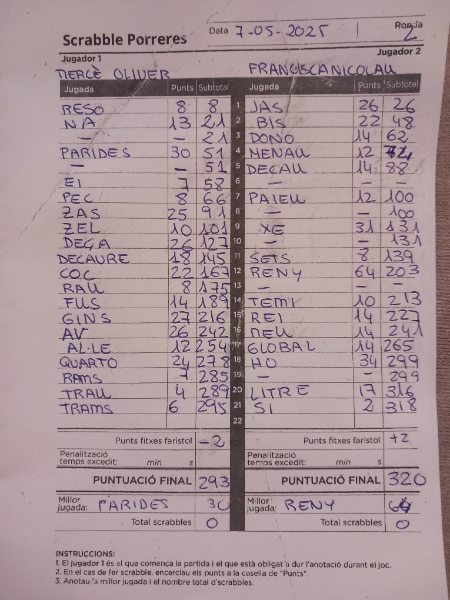 Scrabble Porreres Data 7-05-2025 Ronda 2
Jugador 1 Jugador 2
MERCÈ OLIVER FRANCISCA NICOLAU
Jugada Punts Subtotal Jugada Punts Subtotal
RESO 8 8 1 JAS 26 26
NA 13 21 2 BIS 22 48
— — 21 3 DONO 14 62
PARIDES 30 51 4 MENAU 12 74
— — 51 5 DECAU 14 88
EI 7 58 6 — — —
PEC 8 66 7 PAIEU 12 100
ZAS 25 91 8 — — 100
ZEL 10 101 9 XE 31 131
DEGA 26 127 10 — — 131
DECAURE 18 145 11 SETS 8 139
COC 22 167 12 RENY 64 203
RAU 8 175 13 — — —
FUS 14 189 14 TEMI 10 213
GINS 27 216 15 REI 14 227
AV 26 242 16 NEU 14 241
AL·LE 12 254 17 GLOBAL 14 265
QUARTO 24 278 18 HO 34 299
RAMS 7 285 19 — — 299
TRAU 4 289 20 LITRE 17 316
TRAMS 6 295 21 SI 2 318
22
Punts fitxes faristol -2 Punts fitxes faristol +2
Penalització temps excedit: min s Penalització temps excedit: min s
PUNTUACIÓ FINAL 293 PUNTUACIÓ FINAL 320
Millor jugada: PARIDES 30 Millor jugada: RENY 64
Total scrabbles 0 Total scrabbles 0
INSTRUCCIONS:
1. El jugador 1 és el que comença la partida i el que està obligat a dur l'anotació durant el joc.
2. En el cas de fer scrabble, encerclau els punts a la casella de "Punts".
3. Anotau la millor jugada i el nombre total d'scrabbles.